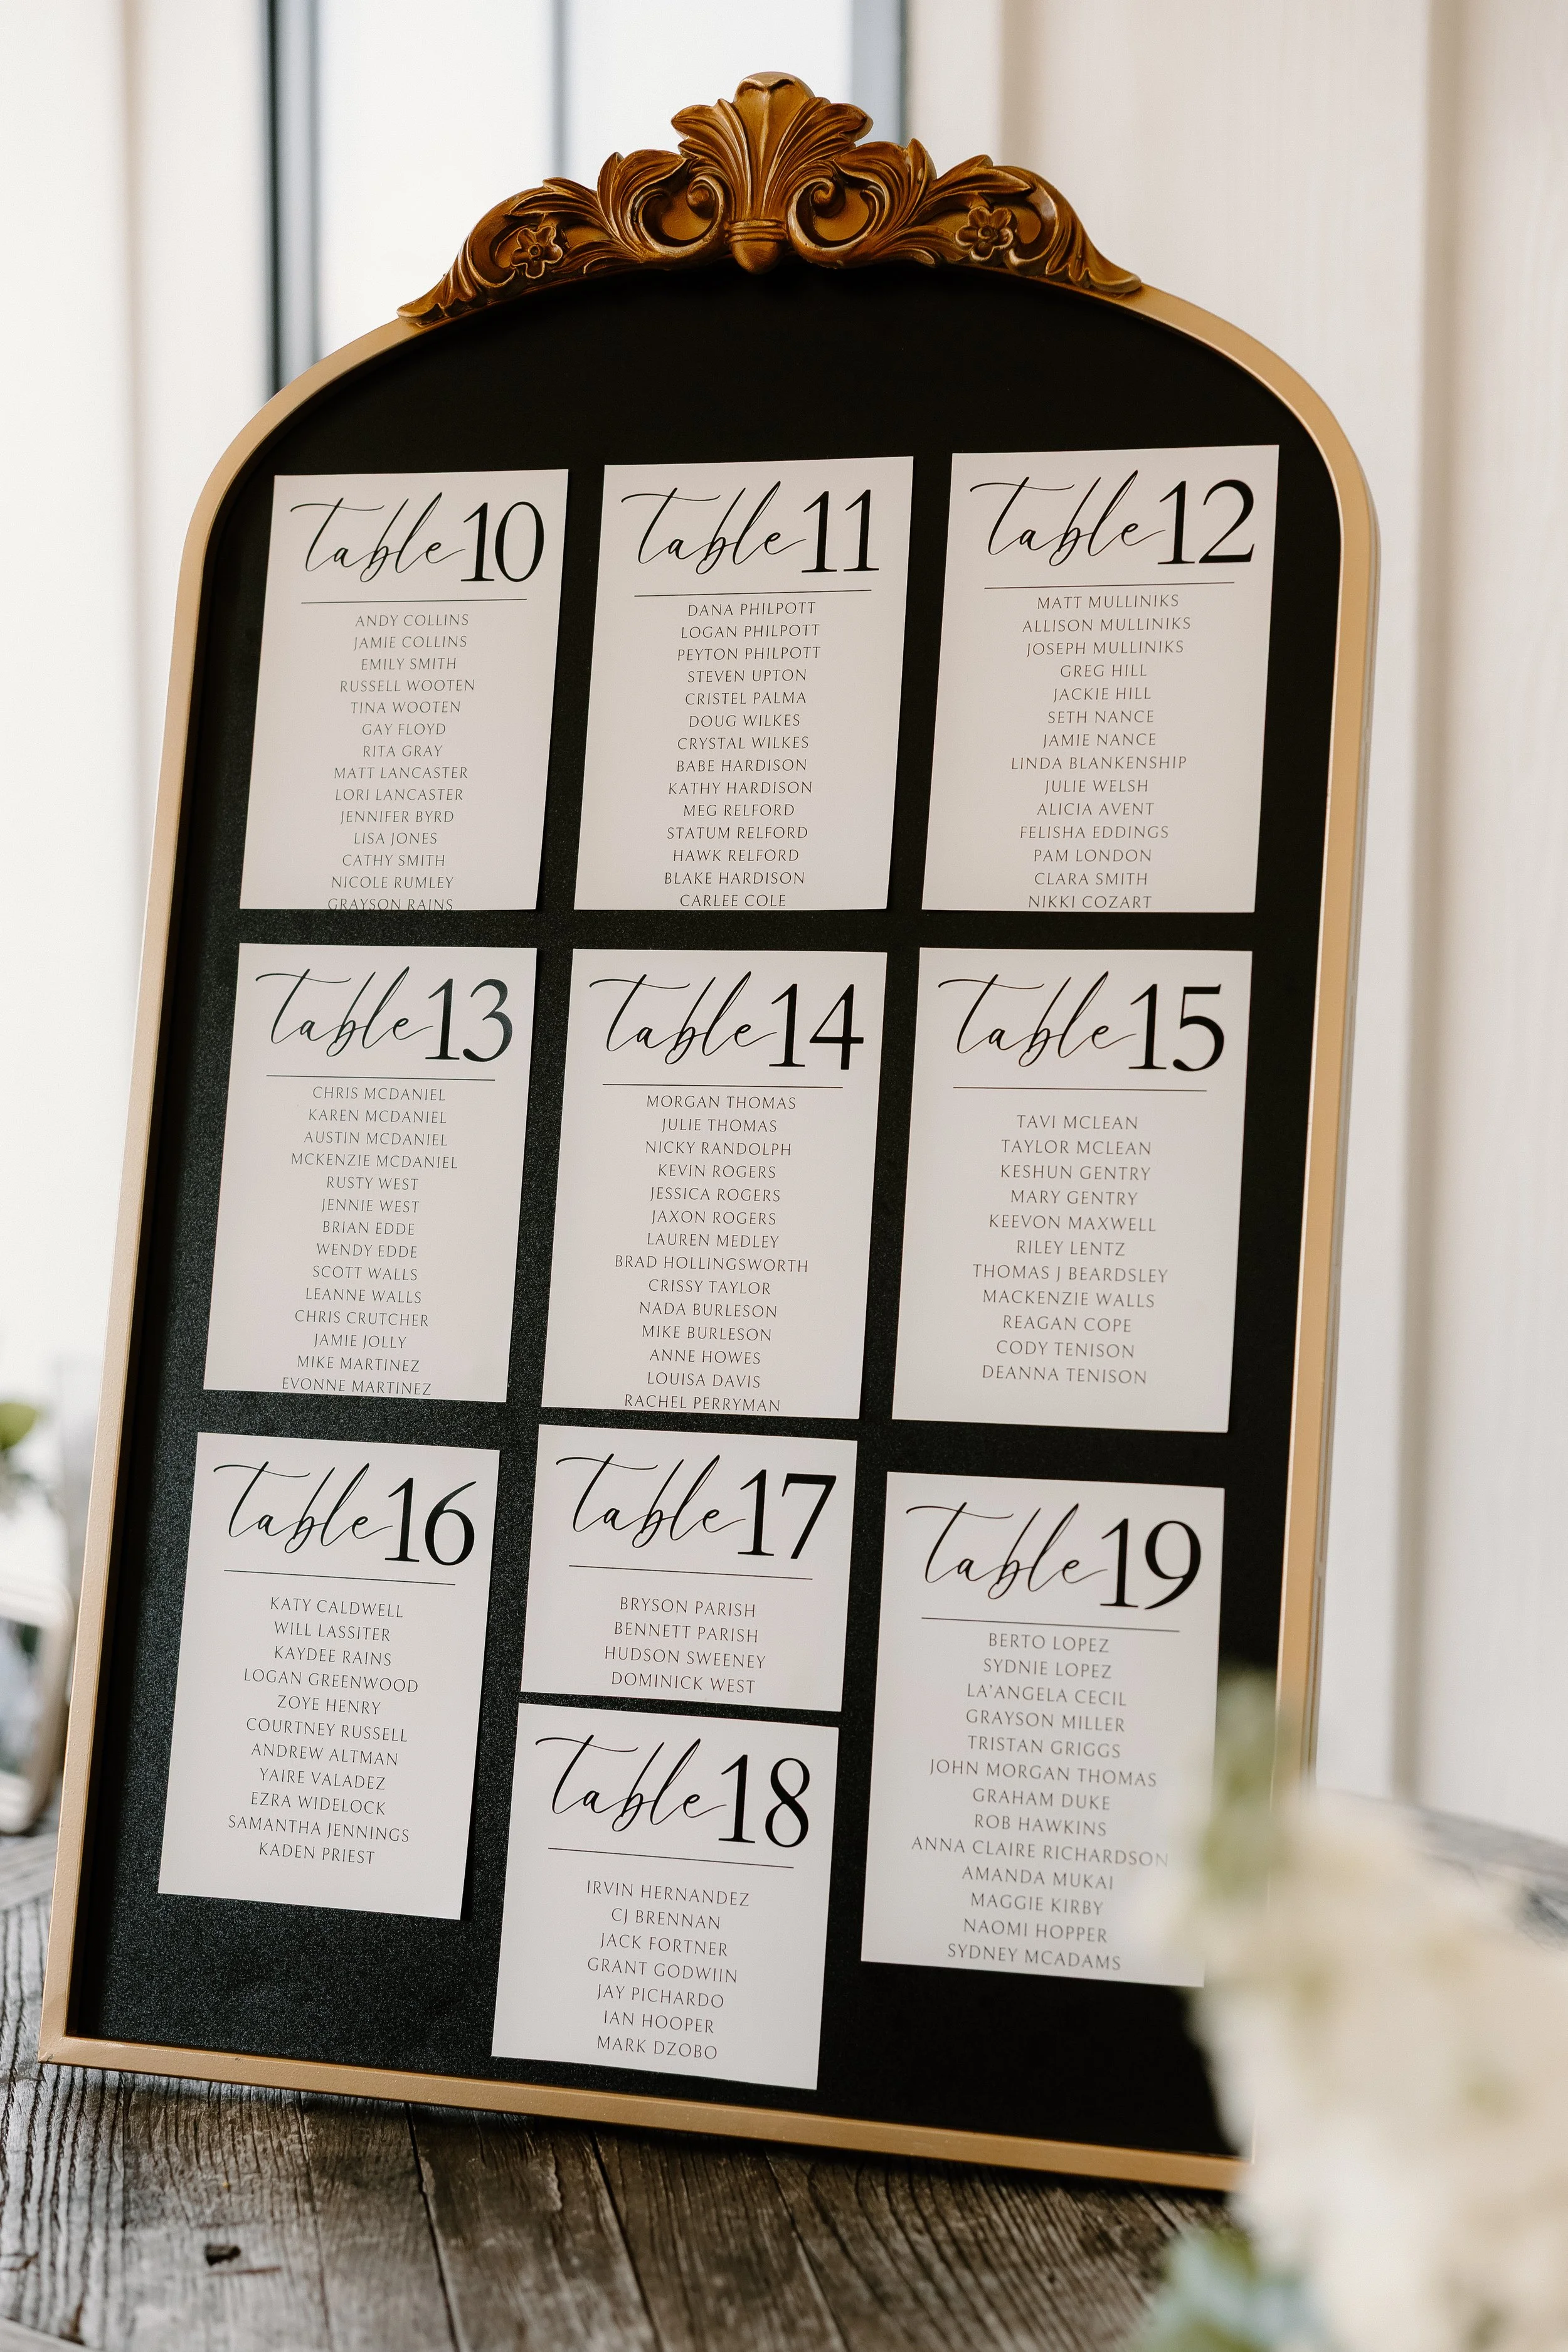 Table 10
ANDY COLLINS
JAMIE COLLINS
EMILY SMITH
RUSSELL WOOTEN
TINA WOOTEN
GAY FLOYD
RITA GRAY
MATT LANCASTER
LORI LANCASTER
JENNIFER BYRD
LISA JONES
CATHY SMITH
NICOLE RUMLEY
GRAYSON RAINS
Table 11
DANA PHILPOTT
LOGAN PHILPOTT
PEYTON PHILPOTT
STEVEN UPTON
CRISTEL PALMA
DOUG WILKES
CRYSTAL WILKES
BABE HARDISON
KATHY HARDISON
MEG RELFORD
STATUM RELFORD
HAWK RELFORD
BLAKE HARDISON
CARLEE COLE
Table 12
MATT MULLINIKS
ALLISON MULLINIKS
JOSEPH MULLINIKS
GREG HILL
JACKIE HILL
SETH NANCE
JAMIE NANCE
LINDA BLANKENSHIP
JULIE WELSH
ALICIA AVENT
FELISHA EDDINGS
PAM LONDON
CLARA SMITH
NIKKI COZART
Table 13
CHRIS MCDANIEL
KAREN MCDANIEL
AUSTIN MCDANIEL
MCKENZIE MCDANIEL
RUSTY WEST
JENNIE WEST
BRIAN EDDE
WENDY EDDE
SCOTT WALLS
LEANNE WALLS
CHRIS CRUTCHER
JAMIE JOLLY
MIKE MARTINEZ
EVONNE MARTINEZ
Table 14
MORGAN THOMAS
JULIE THOMAS
NICKY RANDOLPH
KEVIN ROGERS
JESSICA ROGERS
JAXON ROGERS
LAUREN MEDLEY
BRAD HOLLINGSWORTH
CRISSY TAYLOR
NADA BURLESON
MIKE BURLESON
ANNE HOWES
LOUISA DAVIS
RACHEL PERRYMAN
Table 15
TAVI MCLEAN
TAYLOR MCLEAN
KESHUN GENTRY
MARY GENTRY
KEEVON MAXWELL
RILEY LENTZ
THOMAS J BEARDSLEY
MACKENZIE WALLS
REAGAN COPE
CODY TENISON
DEANNA TENISON
Table 16
KATY CALDWELL
WILL LASSITER
KAYDEE RAINS
LOGAN GREENWOOD
ZOYE HENRY
COURTNEY RUSSELL
ANDREW ALTMAN
YAIRE VALADEZ
EZRA WIDELOCK
SAMANTHA JENNINGS
KADEN PRIEST
Table 17
BRYSON PARISH
BENNETT PARISH
HUDSON SWEENEY
DOMINICK WEST
Table 18
IRVIN HERNANDEZ
CJ BRENNAN
JACK FORTNER
GRANT GODWIIN
JAY PICHARDO
IAN HOOPER
MARK DZOBO
Table 19
BERTO LOPEZ
SYDNIE LOPEZ
LA'ANGELA CECIL
GRAYSON MILLER
TRISTAN GRIGGS
JOHN MORGAN THOMAS
GRAHAM DUKE
ROB HAWKINS
ANNA CLAIRE RICHARDSON
AMANDA MUKAI
MAGGIE KIRBY
NAOMI HOPPER
SYDNEY MCADAMS